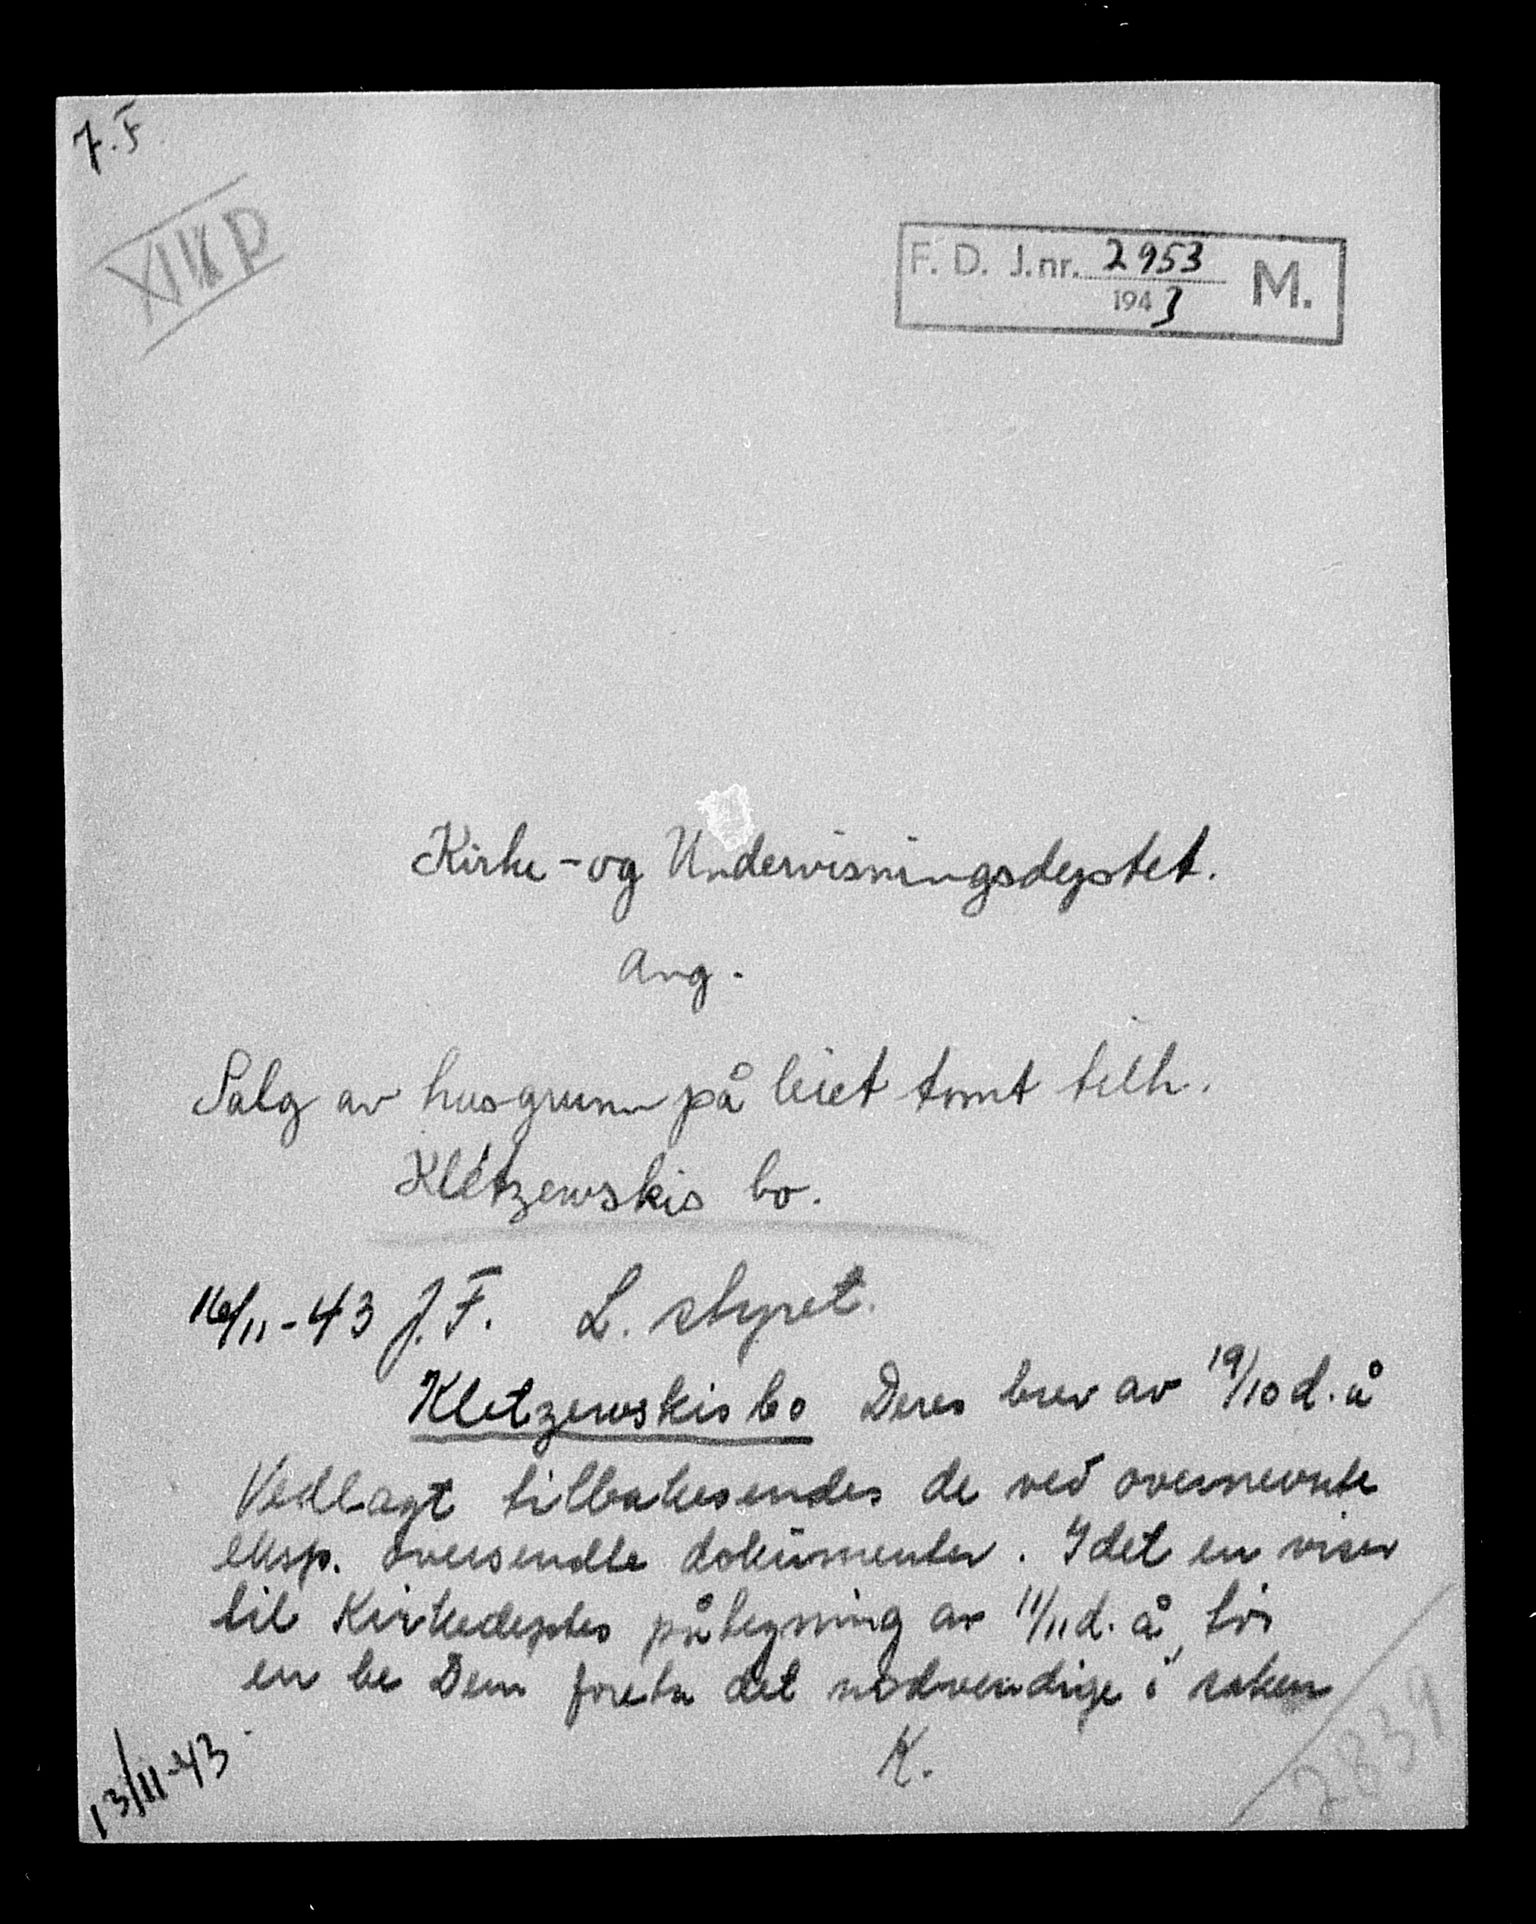 J.F.
XIII P
F. D. J.nr. 2953 M.
1943
Kirke- og Undervisningsdeptet.
Ang.
Salg av husgrunn på leiet tomt tilh.
Kletzewskis bo.
16/11-43 J.F. L. styret.
Kletzewskis bo Deres brev av 19/10 d.å
Vedlagt tilbakesendes de ved overnevnte
eksp. oversendte dokumenter. Idet en viser
til Kirkedeptes påtegning av 11/11 d.å, tør
en be Dem foreta det nødvendige i saken
K.
13/11-43
2839